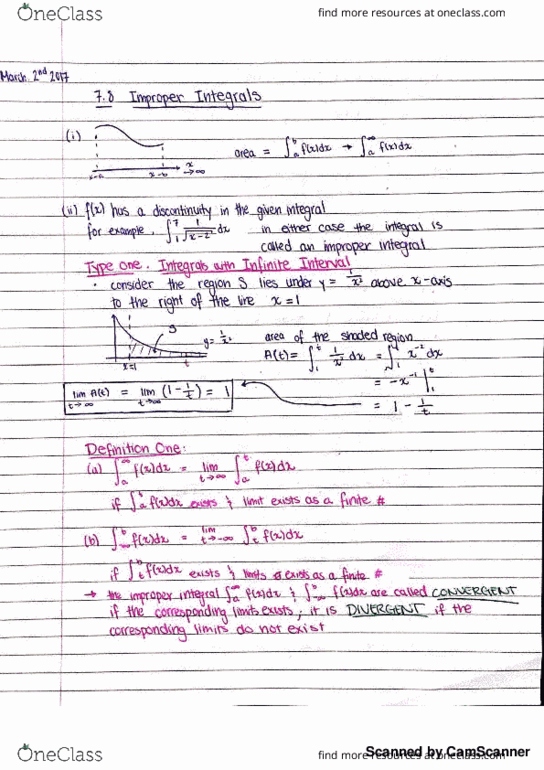 OneClass find more resources at oneclass.com
March 2nd 2017
7.8 Improper Integrals
(i) area = ∫_a^b f(x)dx → ∫_a^∞ f(x)dx
x=a x=b x→∞
(ii) f(x) has a discontinuity in the given integral
for example. ∫_1^7 1/√(x-2) dx in either case the integral is
called an improper integral
Type one. Integrals with Infinite Interval
• consider the region S lies under y = 1/x² above x-axis
to the right of the line x=1
S y=1/x² area of the shaded region
x=1 t A(t) = ∫_1^t 1/x² dx = ∫_1^t x⁻² dx
= -x⁻¹ |_1^t
lim_{t→∞} A(t) = lim_{t→∞} (1 - 1/t) = 1
= 1 - 1/t
Definition One:
(a) ∫_a^∞ f(x)dx = lim_{t→∞} ∫_a^t f(x)dx
if ∫_a^t f(x)dx exists & limit exists as a finite #
(b) ∫_{-∞}^b f(x)dx = lim_{t→-∞} ∫_t^b f(x)dx
if ∫_t^b f(x)dx exists & limits exists as a finite #
→ the improper integral ∫_a^∞ f(x)dx & ∫_{-∞}^b f(x)dx are called CONVERGENT
if the corresponding limits exists, it is DIVERGENT if the
corresponding limits do not exist
Scanned by CamScanner
OneClass find more resources at oneclass.com